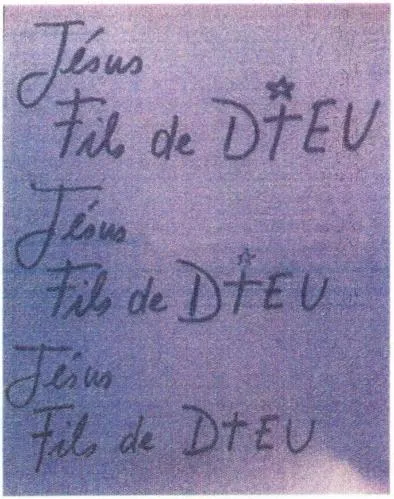 Jésus
Fils de DIEU
Jésus
Fils de DIEU
Jésus
Fils de DIEU